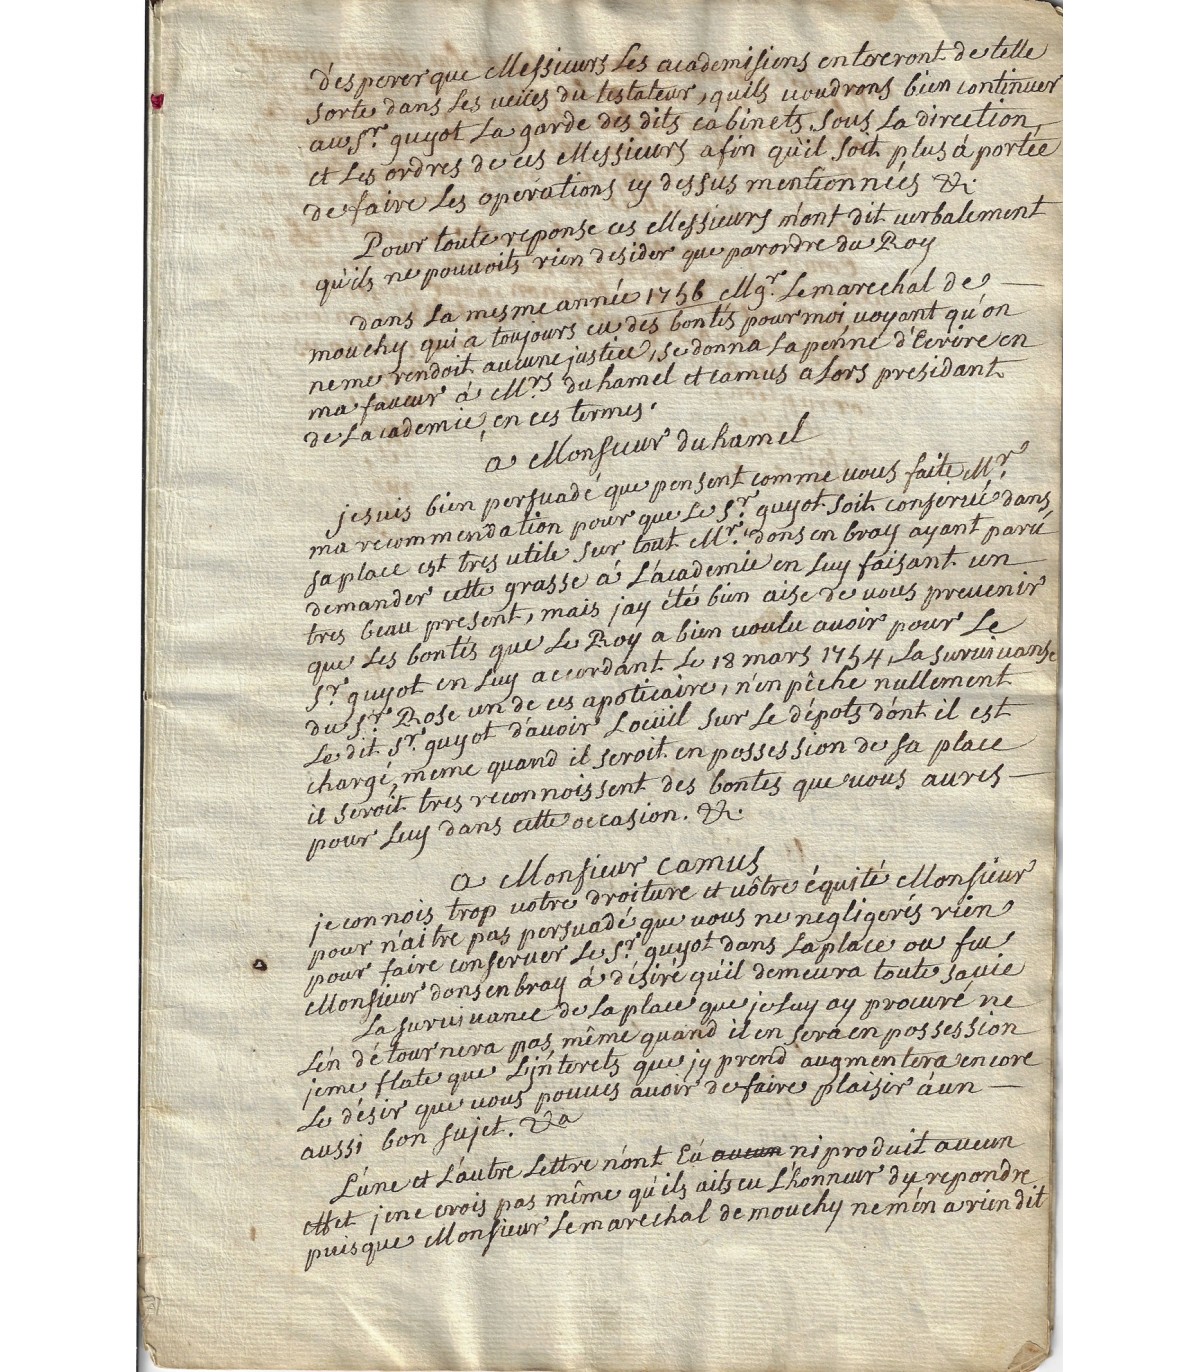 d'esperer que Messieurs Les academisiens entreront de telle
sorte dans Les veües du testateur, quils voudrons bien continuer
au Sr. guyot La garde des dits cabinets sous La direction
et Les ordres de ces Messieurs afin qu'il soit plus á portée
de faire Les operations cy dessus mentionnées &c.
Pour toute reponse ces Messieurs m'ont dit verbalement
qu'ils ne pouvoits rien desider que par ordre du Roy
dans La mesme année 1756 Mgr. Le marechal de
mouchy qui a toujours eu des bontés pour moi voyant qu'on
ne me rendoit aucune justice, se donna La penne d'Ecrire en
ma faveur á Mrs. du hamel et camus alors presidant
de L'academie, en ces termes.
a Monsieur du hamel
je suis bien persuadé que pensent comme vous faite Mr.
ma recommendation pour que Le Sr. guyot soit conservé dans
sa place est tres utile sur tout Mr. donsenbray ayant paru
demander cette grasse á L'academie en Luy faisant un
tres beau present, mais jay été bien aise de vous prevenir
que Les bontés que Le Roy a bien voulu avoir pour Le
Sr. guyot en Luy accordant Le 18 mars 1754, La survivanse
du Sr. Rose un de ces apoticaire, n'en pêche nullement
Le dit Sr. guyot d'avoir L'oeüil sur Le dépots d'ont il est
chargé, meme quand il seroit en possession de sa place
il seroit tres reconnoissent des bontes que vous aures
pour Luy dans cette occasion. &c.
a Monsieur camus
je connois trop votre droiture et vôtre équité Monsieur
pour n'aitre pas persuadé que vous ne negligerés rien
pour faire conserver Le Sr. guyot dans La place ou feu
Monsieur donsenbray á désiré qu'il demeura toute sa vie
La survivance de La place que je Luy ay procuré ne
L'en détournera pas même quand il en sera en possession
je me flate que L'jnterets que jy prend augmentera encore
Le désir que vous pouves avoir de faire plaisir á un
aussi bon sujet. &a
L'une et L'autre Lettre n'ont Eú aucun ni produit aucun
effet je ne crois pas même qu'ils aits eu L'honneur dy repondre
puisque Monsieur Le marechal de mouchy ne m'en a rien dit